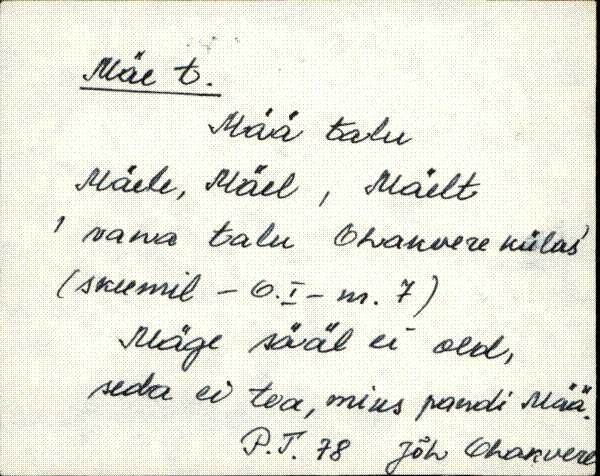 Mäe t.
Mää talu
Mäele, Mäel, Mäelt
' vana talu Ohakvere külas'
(skeemil – O. I – nr. 7)
Mäge sääl ei old,
seda ei tea, miks pandi Mää.
P.T. 78 Jõh Ohakvere